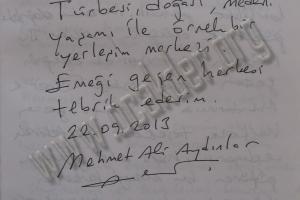 Türbesi, doğası, medeni
yaşamı ile örnek bir
yerleşim merkezi
Emeği geçen herkesi
tebrik ederim.
22.09.2013
Mehmet Ali Aydınlar